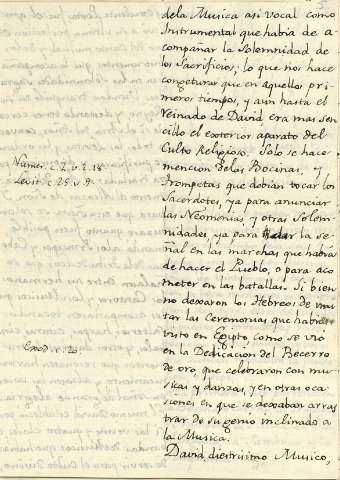 dela Musica asi vocal como
Instrumental que habia de a-
compañar la Solemnidad de
los Sacrificios; lo que nos hace
congeturar que en aquellos pri-
meros tiempos, y aun hasta el
reinado de David era mas sen-
cillo el exterior aparato del
Culto Religioso. Solo se hace
mencion de las Bocinas, y
Trompetas que debian tocar los
Sacerdotes, ya para anunciar
las Neomenias y otras Solem-
nidades ya para dar la se-
ñal en las marchas que habia
de hacer el Pueblo, o para aco
meter en las batallas. Si bien
no dexaron los Hebreos de imi-
tar las Ceremonias que habian
visto en Egipto, como se vió
en la Dedicacion del Becerro
de oro, que celebraron con mu-
sicas y danzas, y en otras oca-
siones en que se dexaban arras
trar de su genio inclinado a
la Musica.
David, diestrisimo Musico,
Numer. c. 2. v. 2. 18
Levit. c. 25. v. 9
Exod. c. 20.